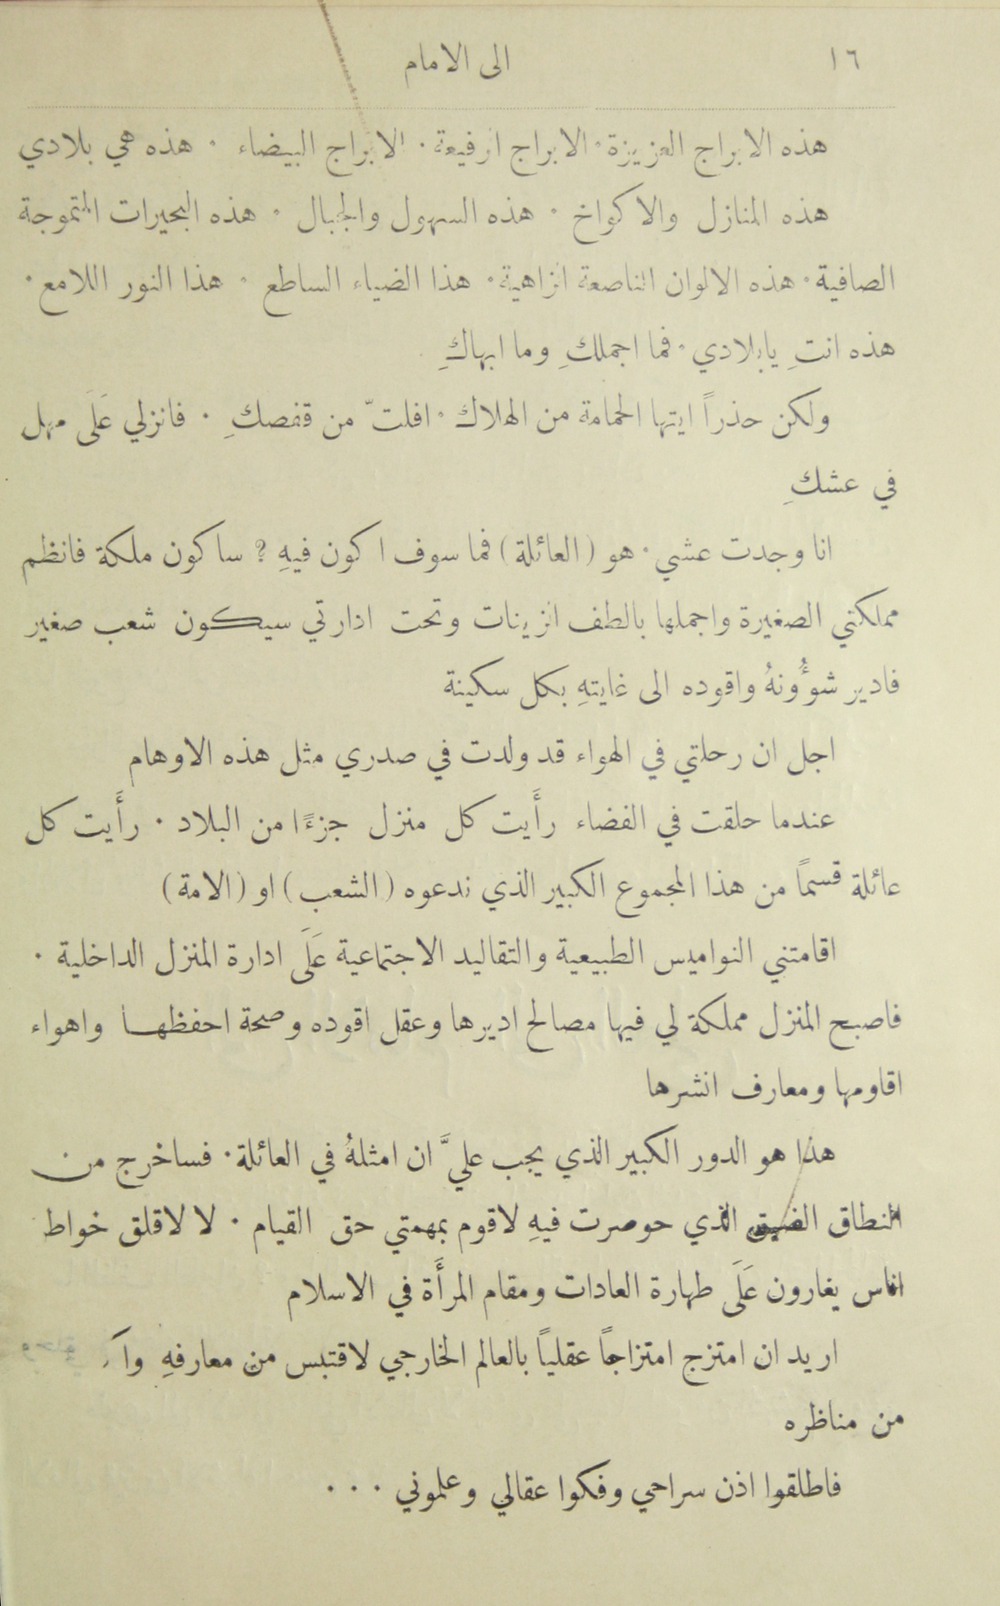 ١٦
الى الامام
هذه الابراج العزيزة. الابراج الرفيعة. الابراج البيضاء . هذه هي بلادي
هذه المنازل والاكواخ . هذه السهول والجبال . هذه البحيرات المتموجة
الصافية. هذه الالوان الناصعة الزاهية. هذا الضياء الساطع . هذا النور اللامع.
هذه انتِ يابلادي. فما اجملكِ وما ابهاكِ
ولكن حذراً ايتها الحمامة من الهلاك. افلتّ من قفصكِ . فانزلي عَلَى مهل
في عشكِ
انا وجدت عشي. هو (العائلة) فما سوف اكون فيهِ ? ساكون ملكة فانظم
مملكتي الصغيرة واجملها بالطف الزينات وتحت ادارتي سيكون شعب صغير
فادير شوءُونهُ واقوده الى غايتهِ بكل سكينة
اجل ان رحلتي في الهواء قد ولدت في صدري مثل هذه الاوهام
عندما حلقت في الفضاء رأَيت كل منزل جزءًا من البلاد . رأَيت كل
عائلة قسماً من هذا المجموع الكبير الذي ندعوه (الشعب) او (الامة)
اقامتني النواميس الطبيعية والتقاليد الاجتماعية عَلَى ادارة المنزل الداخلية .
فاصبح المنزل مملكة لي فيها مصالح اديرها وعقل اقوده وصحة احفظها واهواء
اقاومها ومعارف انشرها
هذا هو الدور الكبير الذي يجب عليَّ ان امثلهُ في العائلة. فساخرج من
النطاق الضيق الذي حوصرت فيهِ لاقوم بمهمتي حق القيام . لا لاقلق خواط
اناس يغارون عَلَى طهارة العادات ومقام المرأَة في الاسلام
اريد ان امتزج امتزاجاً عقلياً بالعالم الخارجي لاقتبس من معارفهِ
من مناظره
فاطلقوا اذن سراحي وفكوا عقالي وعلموني . . .